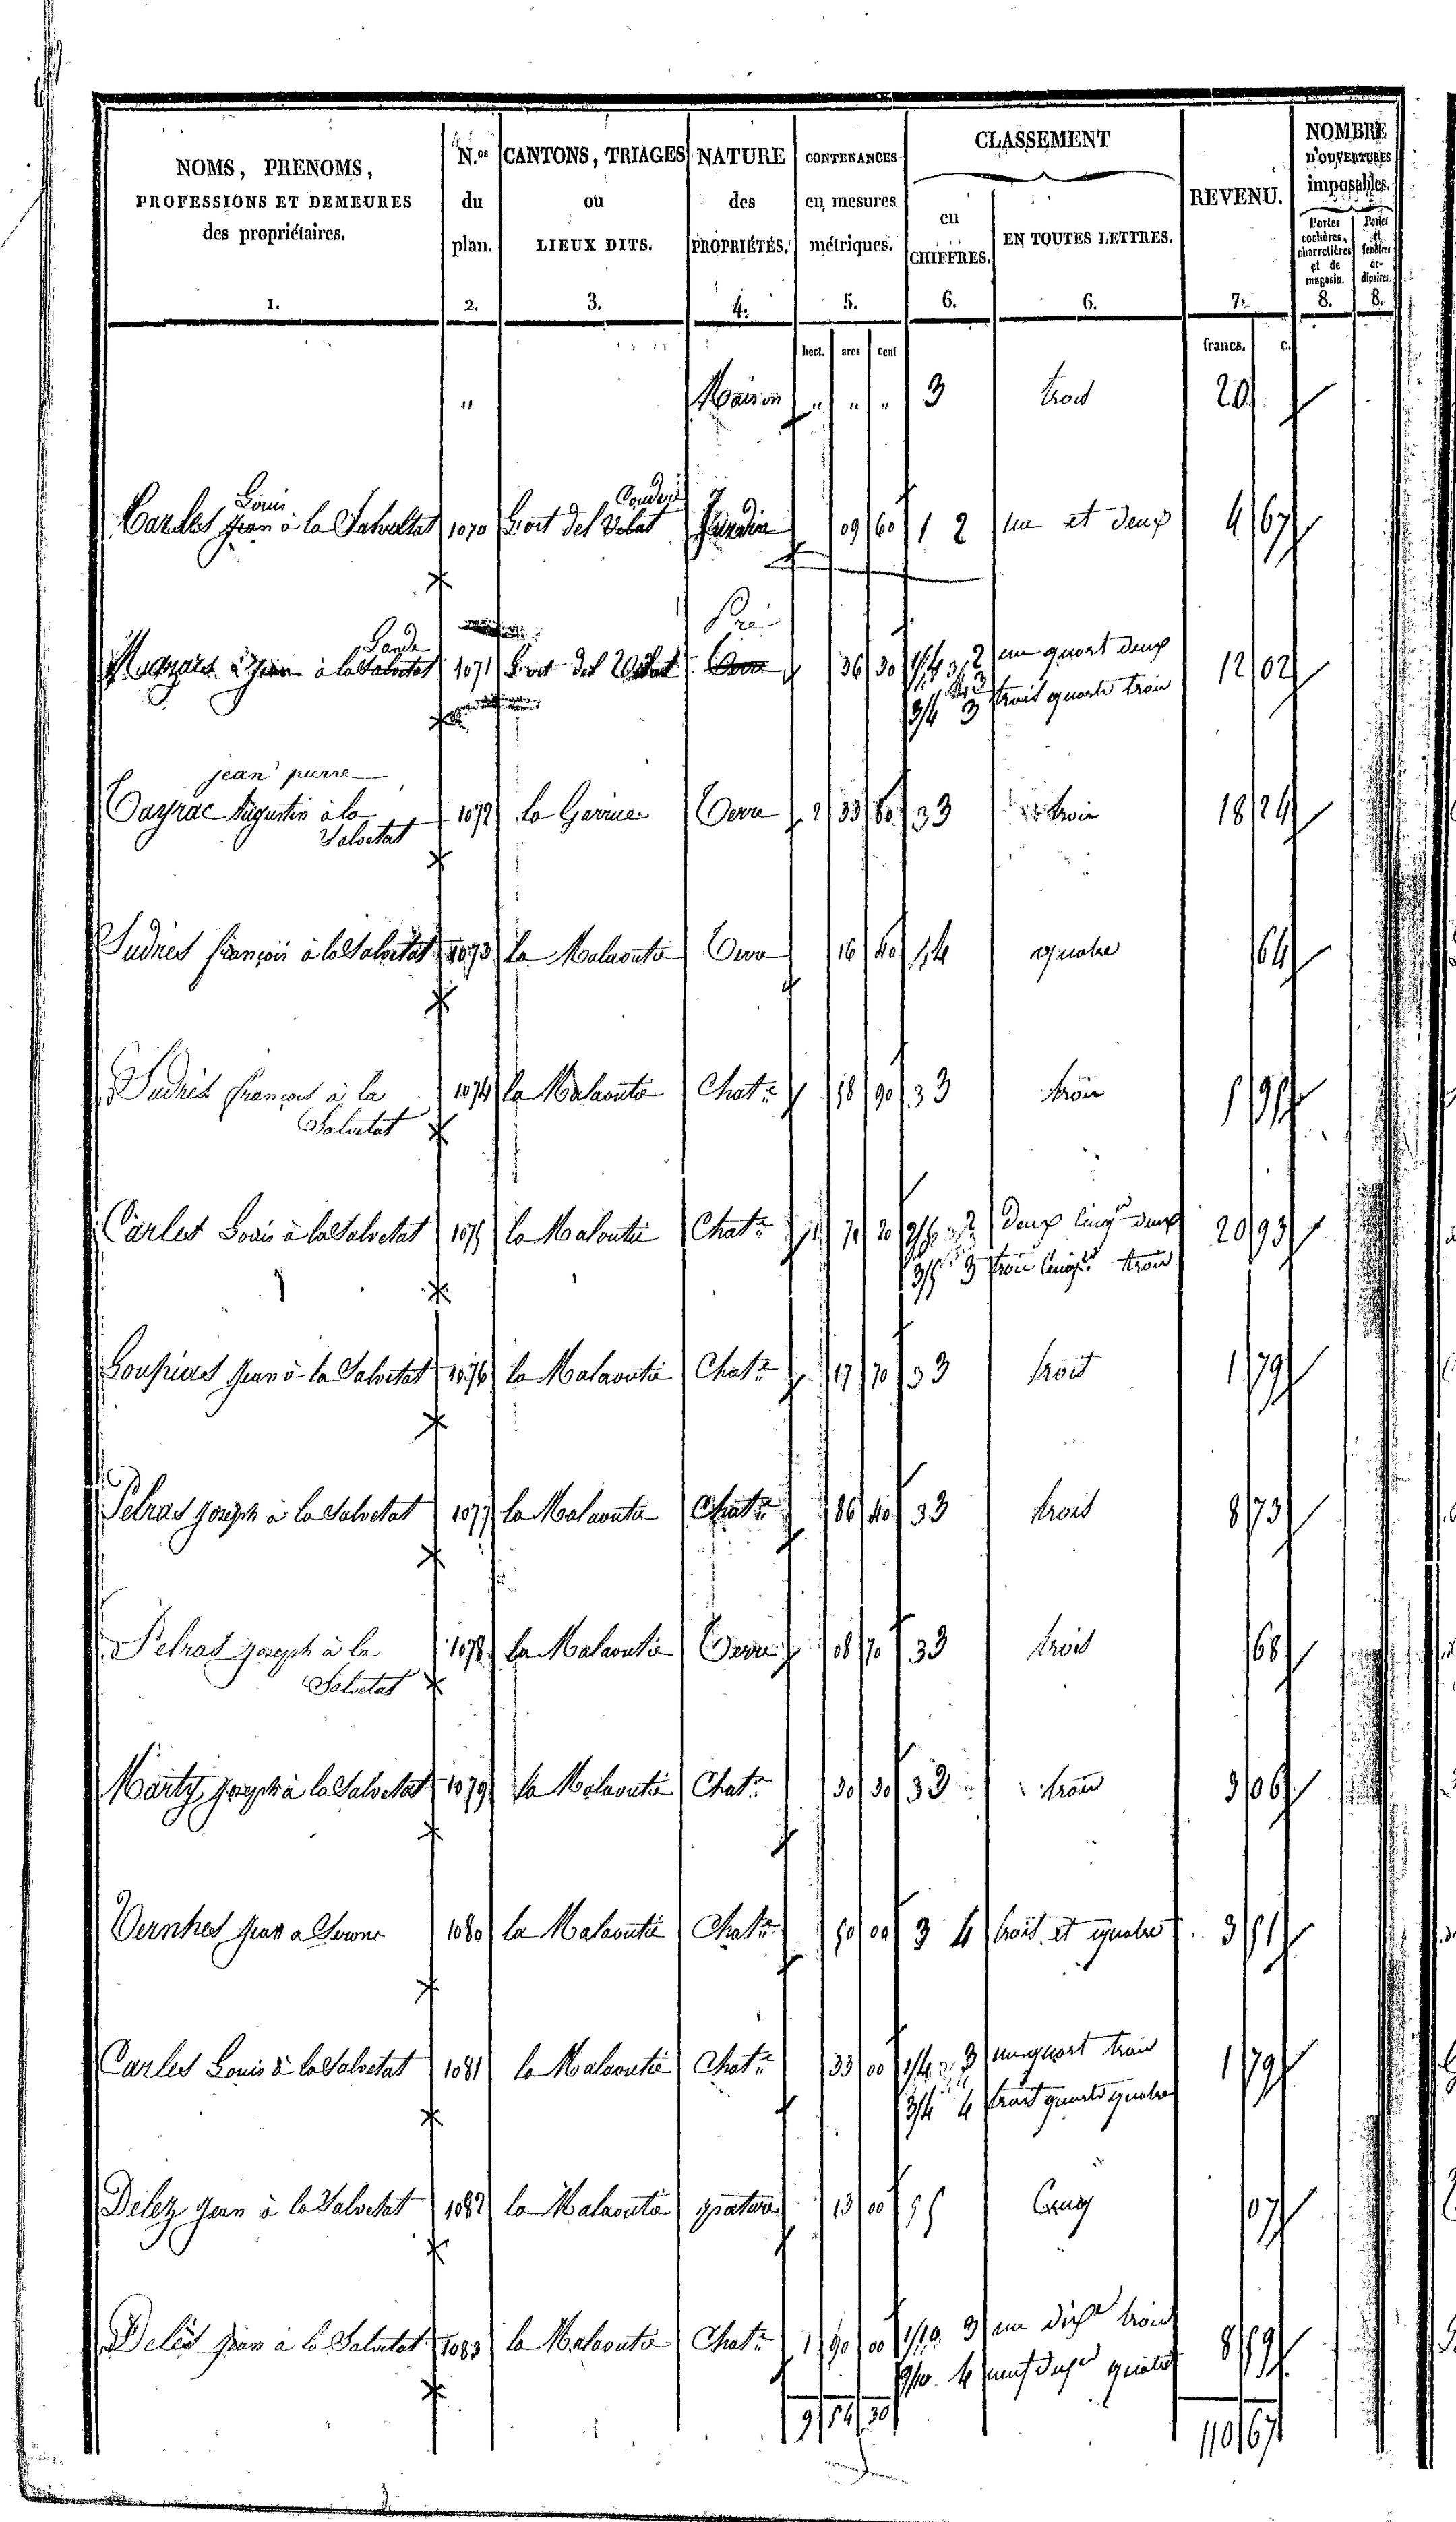 NOMS, PRENOMS,
PROFESSIONS ET DEMEURES
des propriétaires.
1.
N.os
du
plan.
2.
CANTONS, TRIAGES
ou
LIEUX DITS.
3.
NATURE
des
PROPRIÉTÉS.
4.
CONTENANCES
en mesures
métriques.
5.
CLASSEMENT
en
CHIFFRES.
6.
EN TOUTES LETTRES.
6.
REVENU.
7.
NOMBRE
D'OUVERTURES
imposables.
Portes
cochères,
charretières
et de
magasin.
8.
Portes
et
fenêtres
or-
dinaires.
8.
hect. ares cent francs. c.
" Maison " " " 3 trois 20
Louis Couderc
Carles Jean à la Salvetat 1070 Jardin 09 60 1 2 un et deux 4 67
Lande Pré
à la Salvetat 1071 36 30 1/4 2 un quart deux 12 02
3/4 3 trois quarts trois
jean pierre
Tayrac Augustin à la 1072 la Garrine Terre 2 33 80 3 3 trois 18 24
Salvetat
Sudres françois à la Salvetat 1073 la Malaoutie Terre 16 40 4 quatre 64
Sudres françois à la 1074 la Malaoutie Chat.re 18 90 3 3 trois 1 91
Salvetat
Carles Louis à la Salvetat 1075 la Malaoutie Chat.re 1 71 20 2/5 2 deux cinq.e deux 20 93
3/5 3 trois cinq.e trois
Loupias Jean à la Salvetat 1076 la Malaoutie Chat.re 17 70 3 3 trois 1 79
Pelras Joseph à la Salvetat 1077 la Malaoutie Chat.re 86 40 3 3 trois 8 73
Pelras Joseph à la 1078 la Malaoutie Terre 08 70 3 3 trois 68
Salvetat
Marty Joseph à la Salvetat 1079 la Malaoutie Chat.re 30 30 3 3 trois 3 06
Vernhes Jean a 1080 la Malaoutie Chat.re 50 00 3 4 trois et quatre 3 51
Carles Louis à la Salvetat 1081 la Malaoutie Chat.re 33 00 1/4 3 un quart trois 1 79
3/4 4 trois quarts quatre
Delez Jean à la Salvetat 1082 la Malaoutie pature 13 00 5 5 Cinq 07
Delès Jean à la Salvetat 1083 la Malaoutie Chat.re 1 90 00 1/10 3 un dix.e trois 8 59
9/10 4 neuf dix.e quatre
9 54 30 110 67